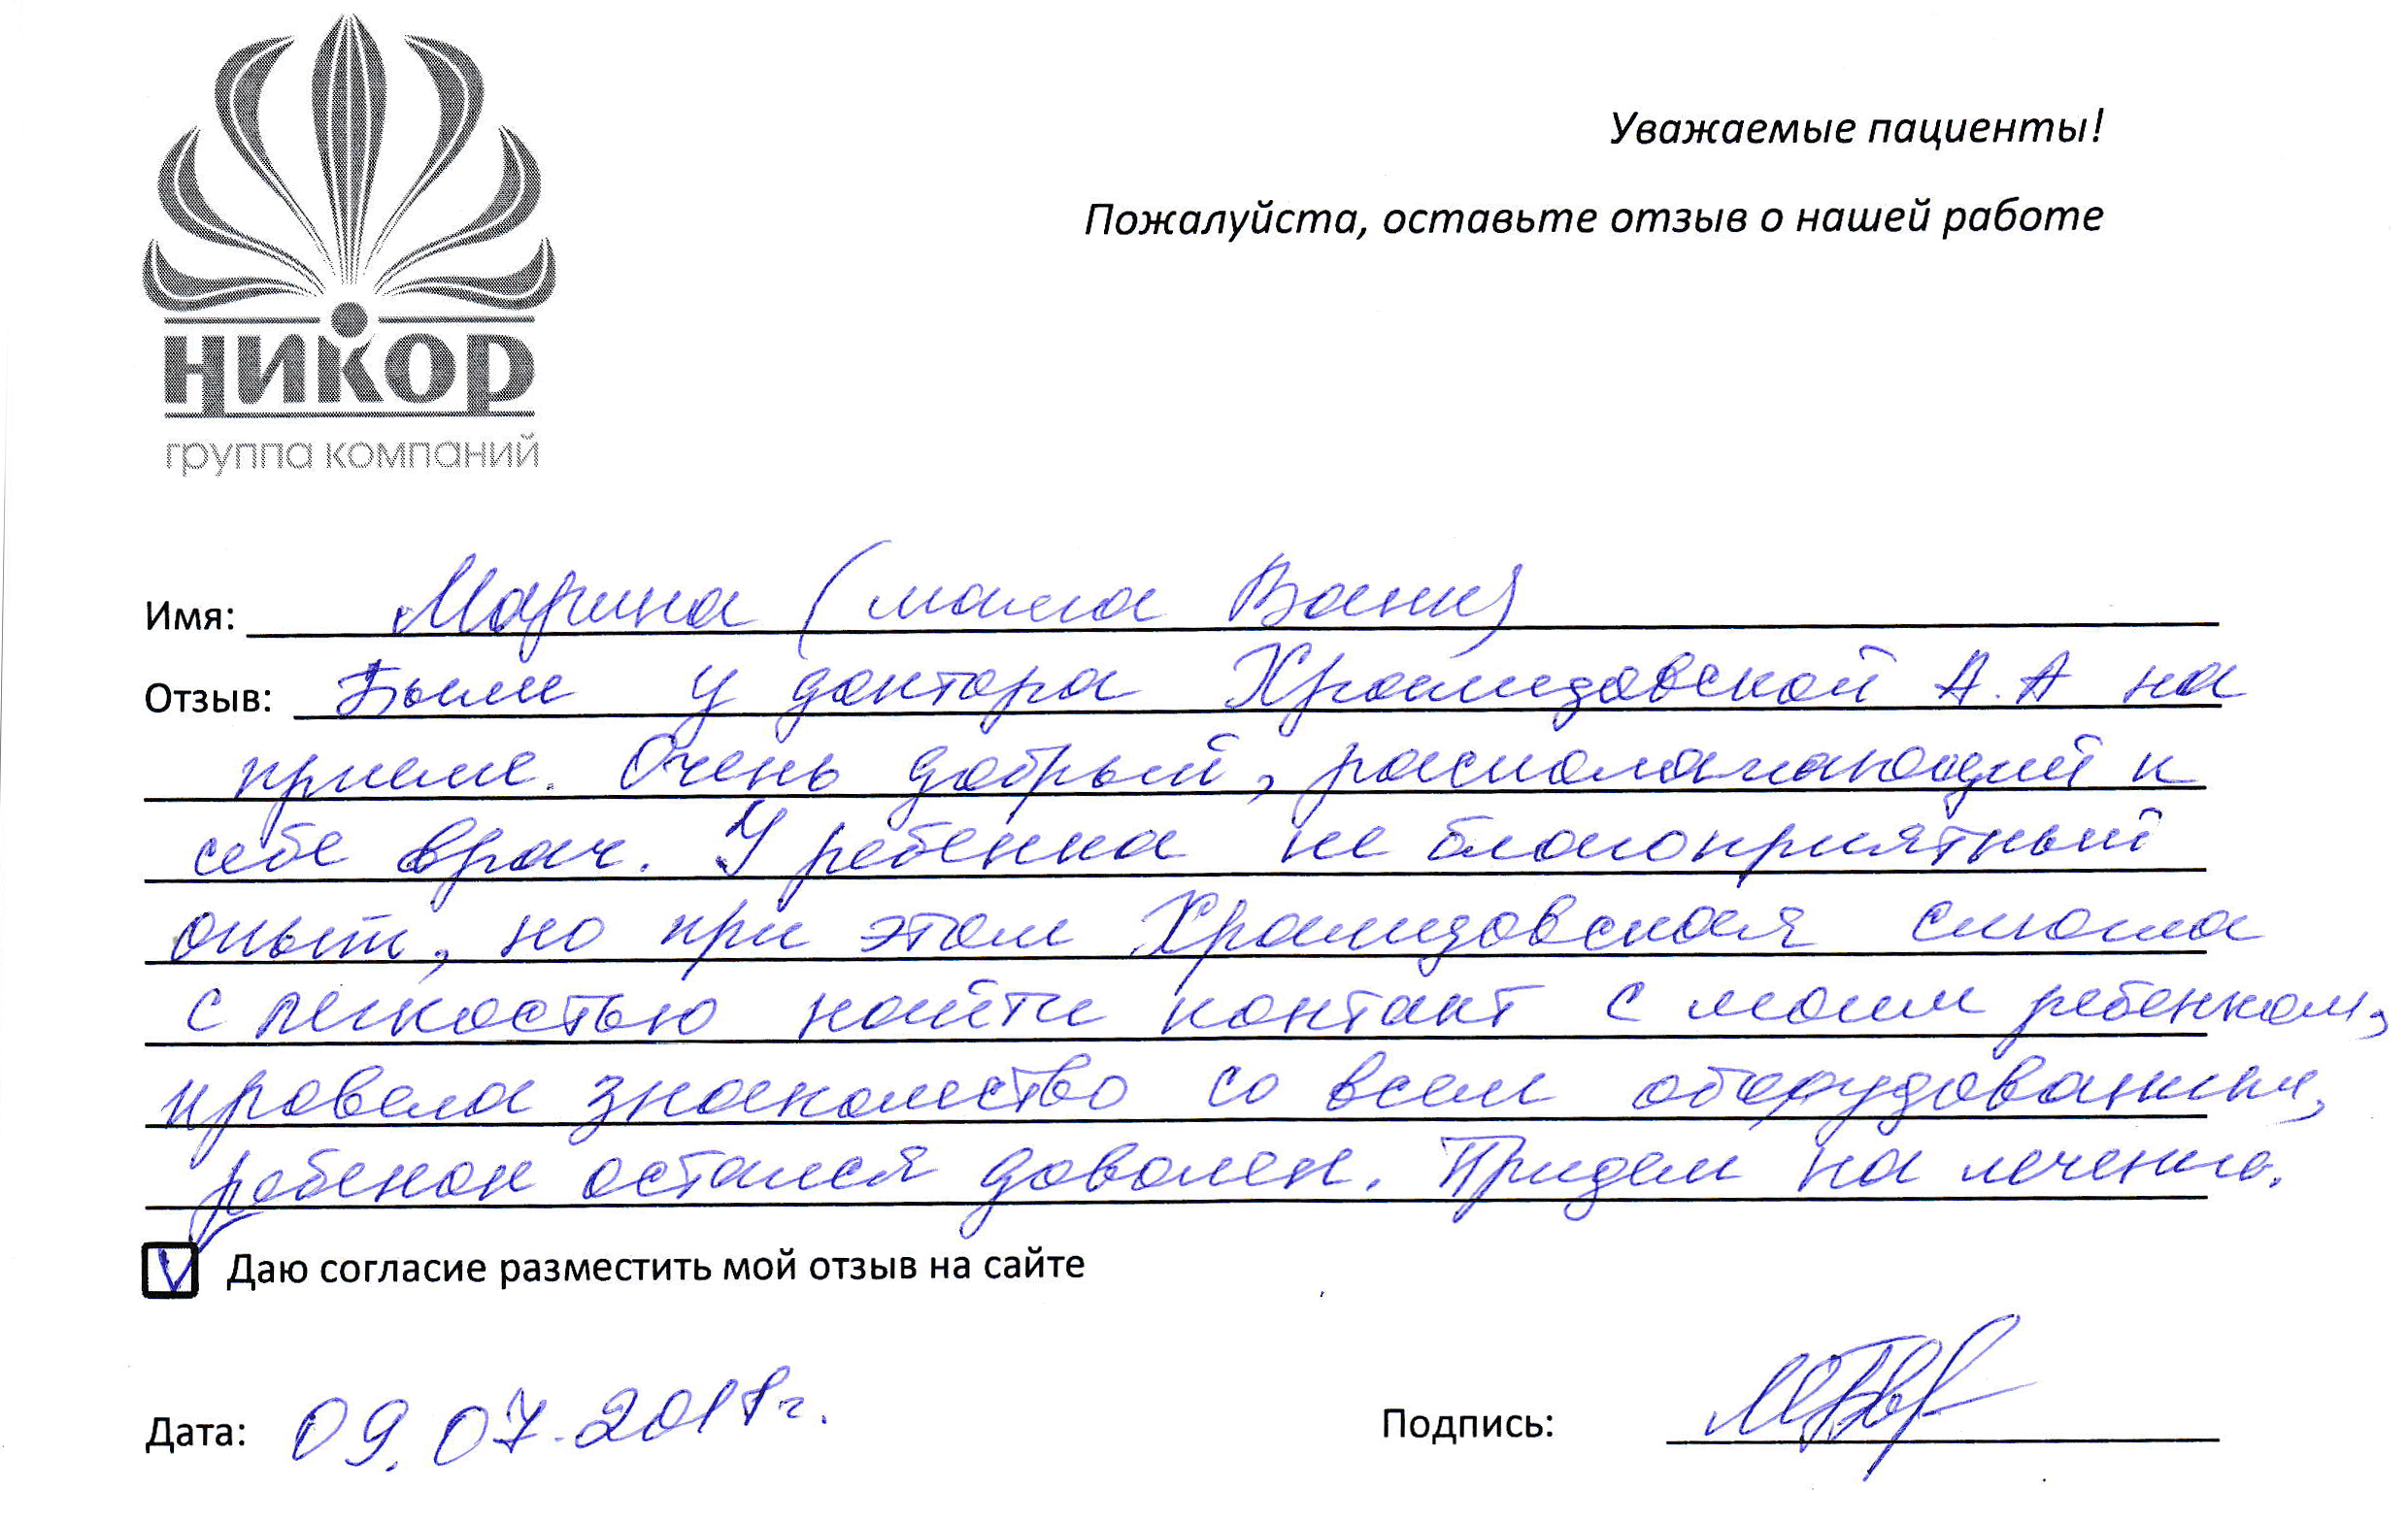 Уважаемые пациенты!
Пожалуйста, оставьте отзыв о нашей работе
НИКОР
группа компаний
Имя: Марина (мама Вани)
Отзыв: Были у доктора Храмидовской А.А на
приеме. Очень добрый, распологающий к
себе врач. У ребенка не благоприятный
опыт, но при этом Храмидовская смогла
с легкостью найти контакт с моим ребенком,
провела знакомство со всем оборудованием,
ребенок остался доволен. Придем на лечение.
V Даю согласие разместить мой отзыв на сайте
Дата: 09.07.2018г.
Подпись: